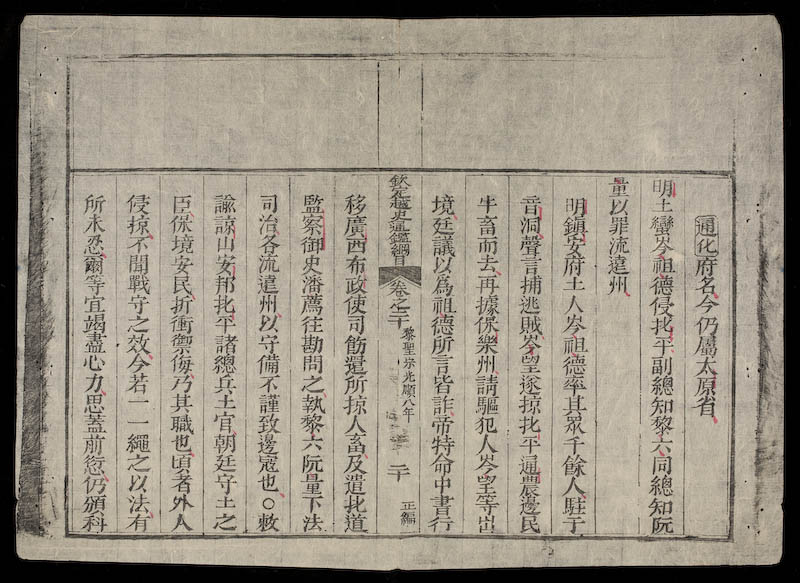 通化府名今仍屬太原省
明土蠻岑祖德侵北平副總知黎六同總知阮
量以罪流遠州
明鎮安府土人岑祖德率其眾千餘人駐于
音洞聲言捕逃賊岑望遂掠北平通農邊民
牛畜而去再據保樂州請驅犯人岑望等出
境廷議以爲祖德所言皆詐帝特命中書行
欽定越史通鑑綱目 卷之二十 黎聖宗光順八年 二十 正編
移廣西布政使司飭還所掠人畜及遣北道
監察御史潘薦往勘問之執黎六阮量下法
司治各流遠州以守備不謹致邊寇也○敕
諭諒山安邦北平諸總兵土官朝廷守土之
臣保境安民折衝禦侮乃其職也頃者外人
侵掠不聞戰守之效今若一一繩之以法有
所未忍爾等宜竭盡心力思蓋前愆仍頒科